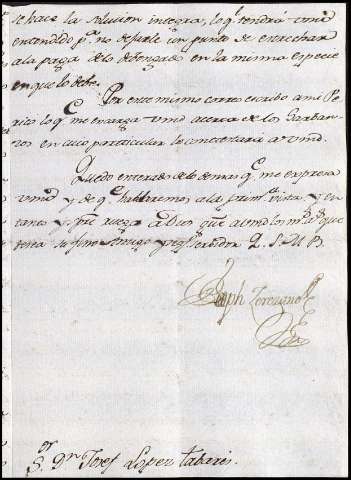 se hace la solucion integra, lo q.e tendrá vmd
entendido p.a no dejarle un punto de estrechar
a la paga de lo debengado en la misma especie
en que lo debe.
Por este mismo correo escribo a mi Pe-
rito lo q.e me encarga vmd acerca de los Garban-
zos en cuio particular lo contestará a vmd.
Quedo enterado de lo demas q.e me expresa
vmd y de q.e hablaremos a la prim.a vista, y en
tanto y spre ruega a Dios que a vmd los m.s a.s que
desea su fino Amigo y seg.o servidor Q. S. M. B.
Joseph
S.or D.n Josef Lopez Tabares.